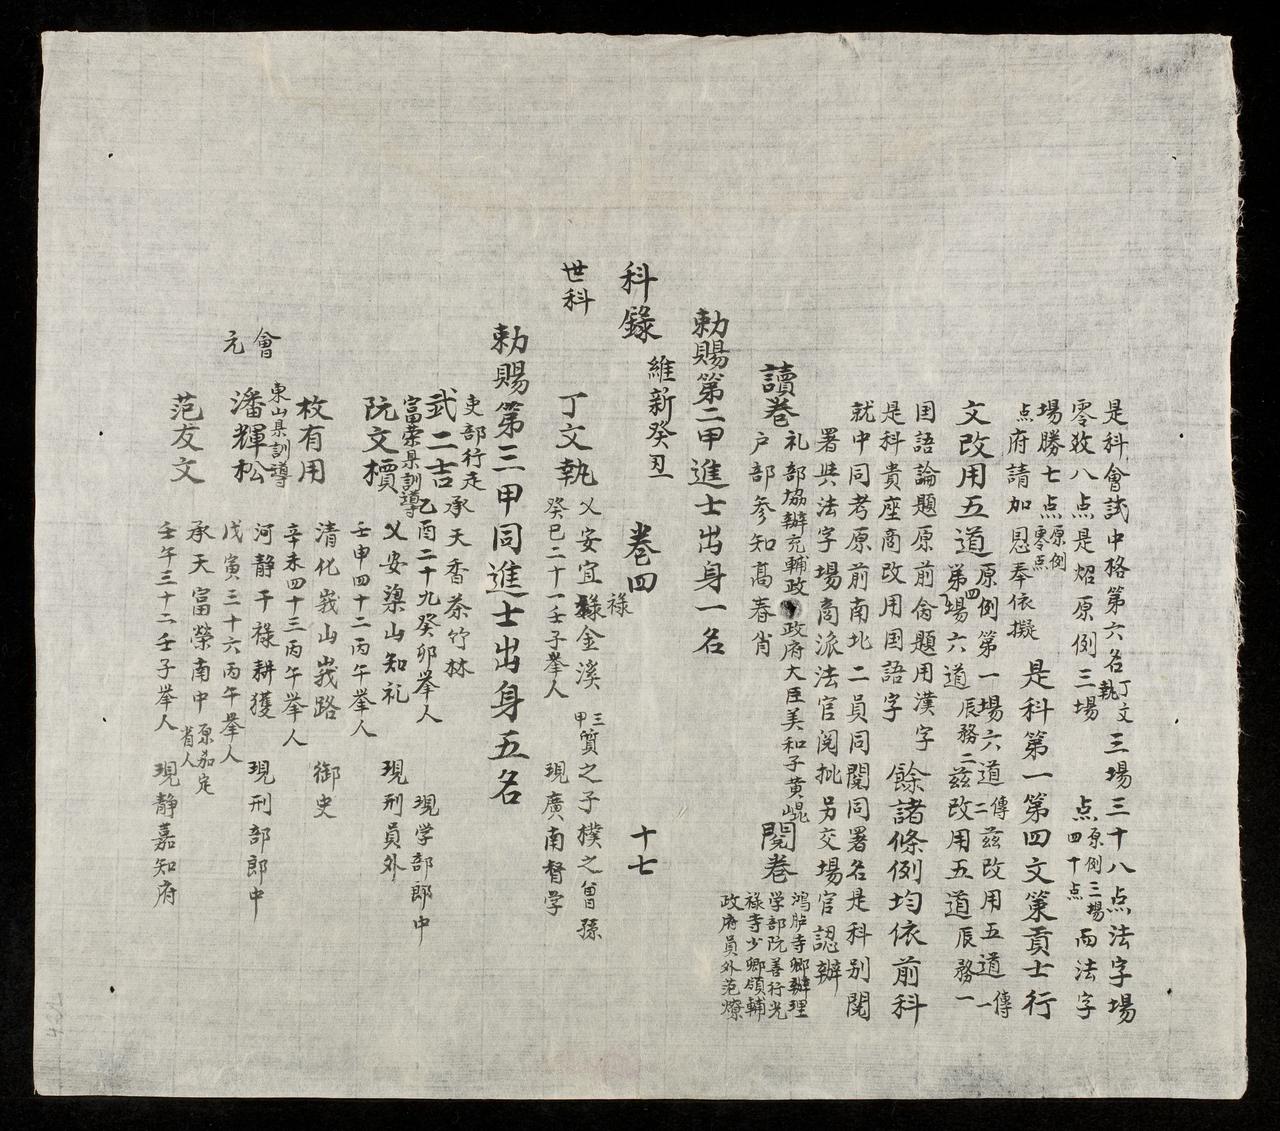 是科會試中格第六名丁文執三場三十八点法字場
零数八点是炤原例三場点原例三場四十点而法字
場勝七点原例零点
点府請加恩奉依擬
是科第一第四文策貢士行
文改用五道原例第一場六道傳二茲改用五道傳一
第四場六道辰務二茲改用五道辰務一
囯語論題原前肏題用漢字
餘諸條例均依前科
是科貴座商改用囯語字
就中同考原前南北二員同閱同署名是科别閱
署與法字場商派法官阅批另交場官認辦
讀巻
礼部協辦充輔政政府大臣美和子黄崐
户部参知高春肖
閱巻
鸿胪寺卿辦理
学部阮善行光
禄寺少卿領輔
政府員外范燎
勅賜第二甲進士出身一名
科錄
維新癸丑
巻四
十七
世科
丁文執
乂安宜祿金溪
三甲質之子樸之曾孫
癸巳二十一壬子举人
現廣南督学
勅賜第三甲同進士出身五名
吏部行走
武二吉
承天香茶竹林
乙酉二十九癸卯举人
現学部郎中
富荣県訓導
阮文槚
乂安梁山知礼
壬申四十二丙午举人
現刑員外
枚有用
清化峩山峩路
辛未四十三丙午举人
御史
會元
東山県訓導
潘輝松
河静干禄耕獲
戊寅三十六丙午举人
現刑部郎中
范友文
承天富榮南中
原嘉定省人
壬午三十二壬子举人
現静嘉知府